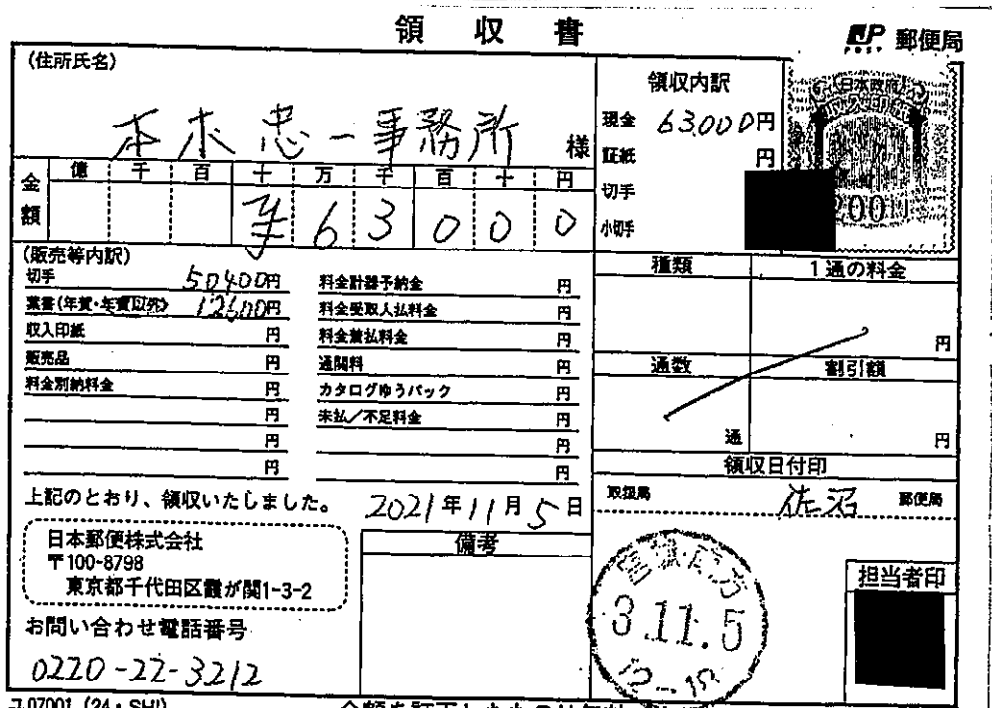 領収書
JP POST 郵便局
(住所氏名)
本木忠一事務所 様
領収内訳
現金 63,000円
証紙 円
切手
小切手
日本政府
200
金額
億 千 百 十 万 千 百 十 円
¥ 6 3 0 0 0
(販売等内訳)
切手 50400円
葉書(年賀・年賀以外) 12600円
収入印紙 円
販売品 円
料金別納料金 円
円
円
円
料金計器予納金 円
料金受取人払料金 円
料金後払料金 円
通関料 円
カタログゆうパック 円
未払/不足料金 円
円
円
種類 1通の料金
円
通数 割引額
通 円
領収日付印
取扱局 佐沼 郵便局
上記のとおり、領収いたしました。
2021年11月5日
日本郵便株式会社
〒100-8798
東京都千代田区霞が関1-3-2
お問い合わせ電話番号
0220-22-3212
備考
3.11.5
担当者印